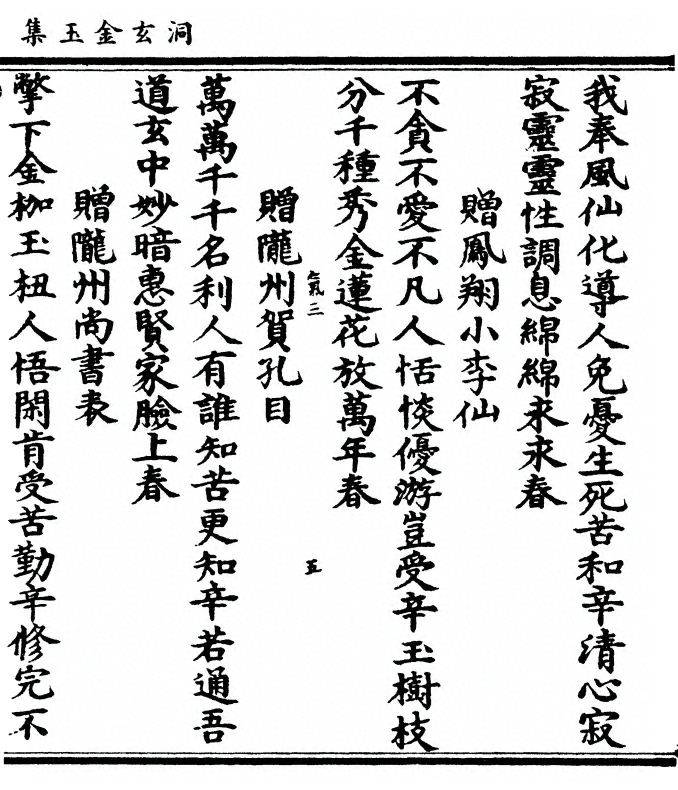 洞玄金玉集
我奉風仙化導人免憂生死苦和辛清心寂
寂靈靈性調息綿綿永永春
贈鳳翔小李仙
不貪不愛不凡人恬惔優游豈受辛玉樹枝
分千種秀金蓮花放萬年春
氣三
五
贈隴州賀孔目
萬萬千千名利人有誰知苦更知辛若通吾
道玄中妙暗惠賢家臉上春
贈隴州尚書表
擎下金枷玉杻人悟閑肯受苦勤辛修完不